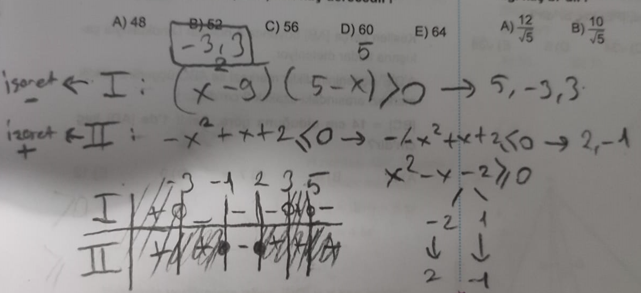 A) 48 B) 52 C) 56 D) 60 E) 64 A) 12/√5 B) 10/√5
-3, 3 5
işaret - ← I : (x² - 9) (5 - x) > 0 → 5, -3, 3
işaret + ← II : -x² + x + 2 ≤ 0 → -/-x² + x + 2 ≤ 0 → 2, -1
x² - x - 2 ≥ 0
-2 1
↓ ↓
2 -1
-3 -1 2 3 5
I + - - - + -
II + + - + +